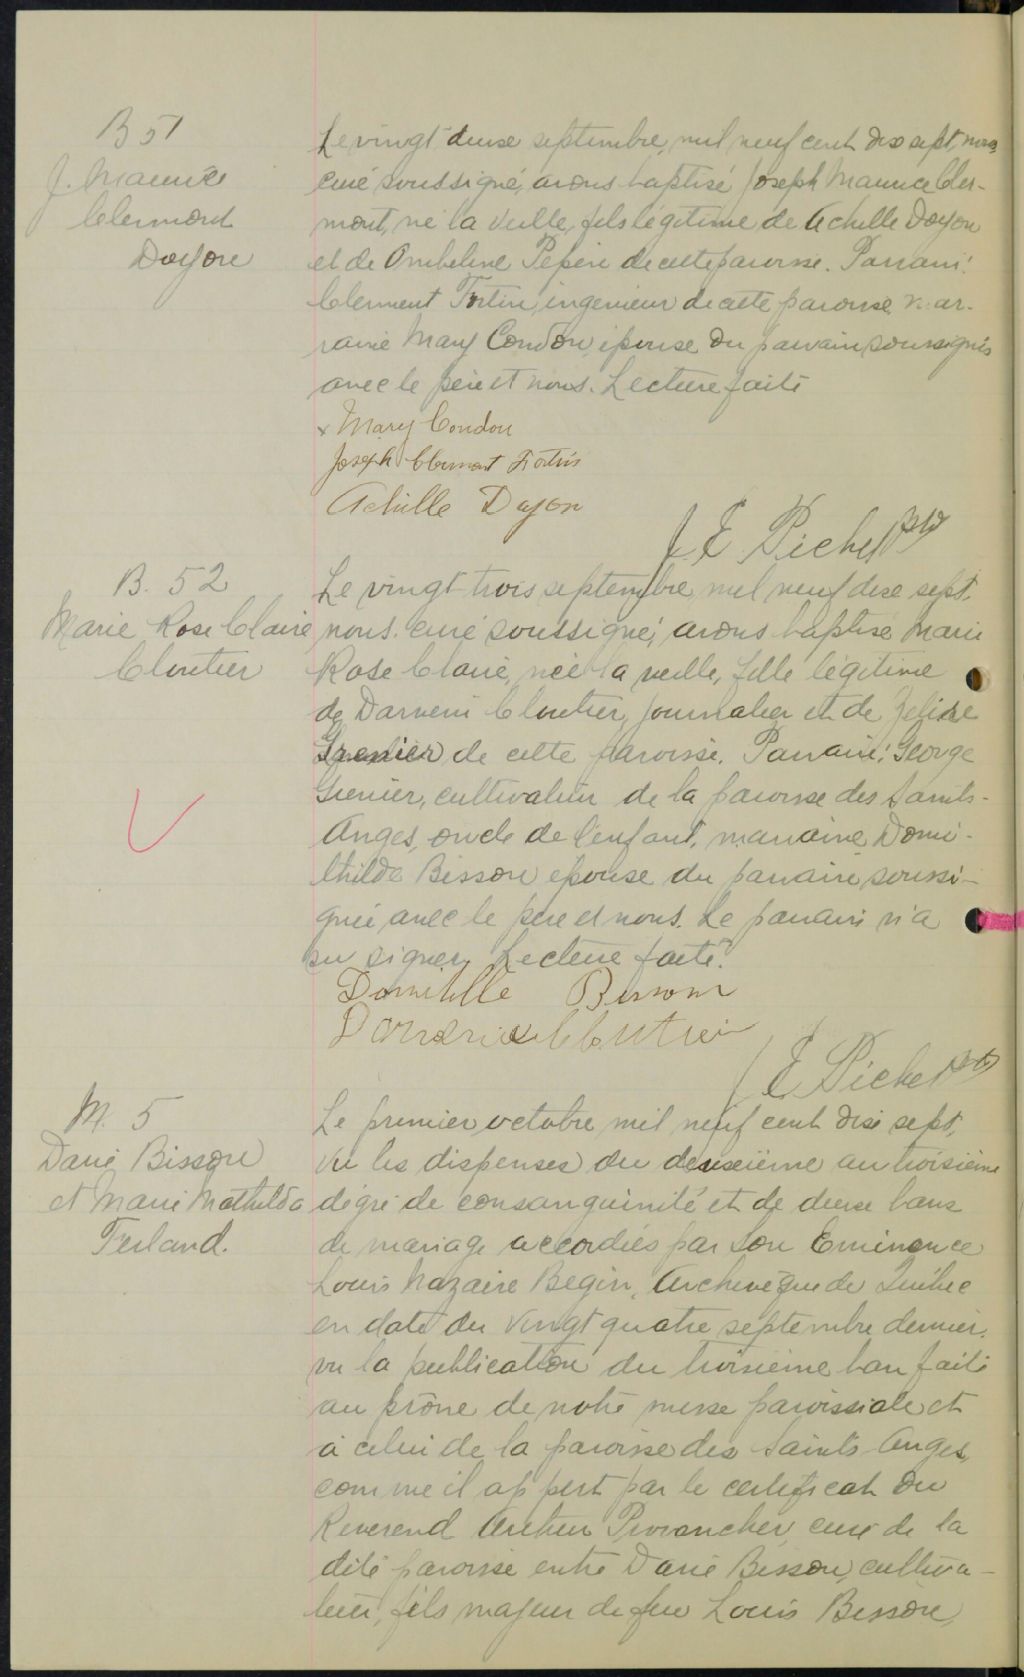 B 51
J. Maurice
Clermont
Doyon
Le vingt deuse septembre, mil neuf cent dix sept, nous
curé soussigné, avons baptisé Joseph Maurice Cler-
mont, né la veille, fils légitime de Achille Doyon
et de Ombeline Pepin de cette paroisse. Parrain:
Clermont Fortin, ingenieur de cette paroisse mar-
raine Mary Condon, épouse du parrain soussignés
avec le père et nous. Lecture faite
x Mary Condon
Joseph Clermont Fortin
Achille Doyon
J. E. Pichet ptr
B. 52
Marie Rose Claire
Cloutier
Le vingt trois septembre, mil neuf dise sept,
nous curé soussigné, avons baptisé Marie
Rose Claire, née la veille, fille légitime
de Cloutier, journalier et de Zelire
Grenier de cette paroisse. Parrain: George
Grenier, cultivateur de la paroisse des Saints-
Anges, oncle de l'enfant, marraine Domi-
thilde Bisson épouse du parrain, soussi-
gnée avec le père et nous. Le parrain n'a
su signer. Lecture faite.
Domitille Bisson
Cloutier
J E Pichet ptr
M. 5
Darie Bisson
et Marie Mathilda
Ferland.
Le premier octobre mil neuf cent dise sept,
vu les dispenses du deuseième au troisième
degré de consanguinité et de deuse bans
de mariage accordées par Son Eminence
Louis Nazaire Begin, Archevêque de Québec
en date du vingt quatre septembre dernier,
vu la publication du troisième ban faite
au prône de notre messe paroissiale et
à celui de la paroisse des Saints-Anges,
comme il appert par le certificat du
Reverend Arthur Provancher, curé de la
dite paroisse entre Darie Bisson, cultiva-
teur, fils majeur de feu Louis Bisson,